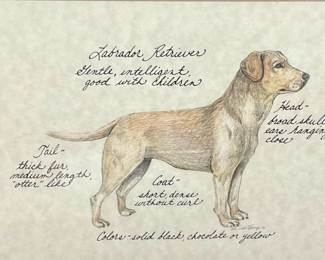 Labrador Retriever
Gentle, intelligent,
good with children
Head-
broad skull
ears hanging
close
Tail-
thick fur,
medium length,
"otter" like
Coat-
short, dense
without curl
Colors-solid black, chocolate or yellow